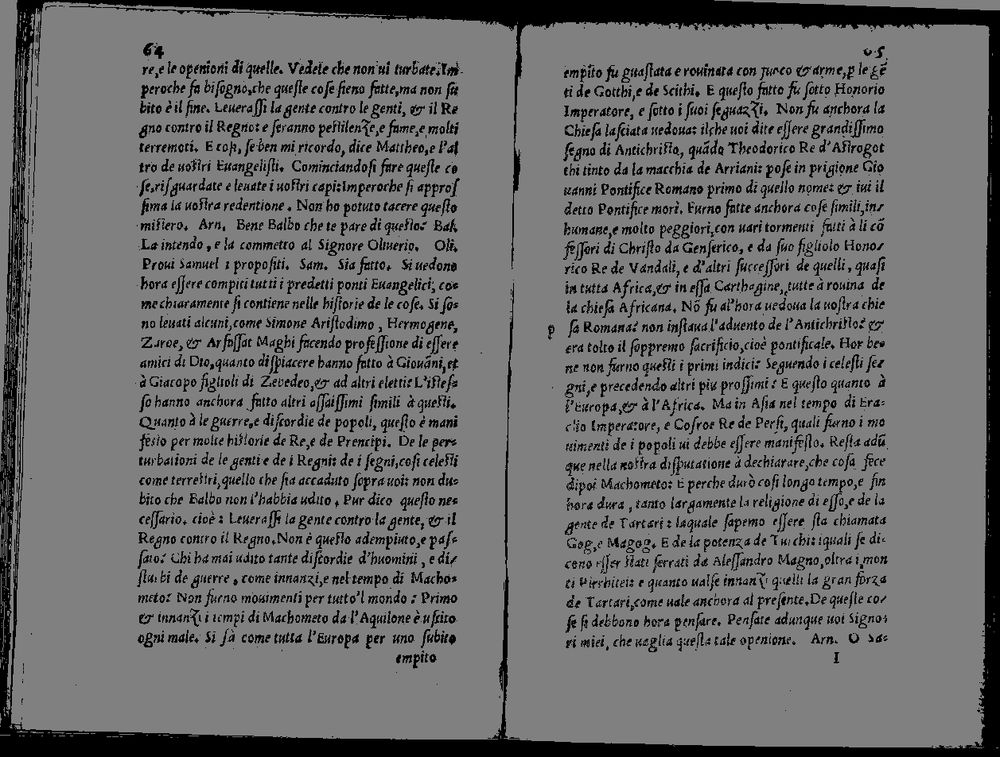 64
re, e le openioni di quelle. Vedete che non ui turbate. Im
peroche fa bisogno, che queste cose sieno fatte, ma non su
bito è il fine. Leuerassi la gente contro le genti, & il Re
gno contro il Regno: e seranno pestilenze, e fame, e molti
terremoti. E cosi, se ben mi ricordo, dice Mattheo, e l'al
tro de uostri Euangelisti. Cominciandosi fare queste co
se, risguardate e leuate i uostri capi: Imperoche si appros
sima la uostra redentione. Non ho potuto tacere questo
mistero. Arn. Bene Balbo che te pare di questo? Bal.
La intendo, e la commetto al Signore Oliuerio. Oli.
Proui Samuel i propositi. Sam. Sia fatto. Si uedono
hora essere compiti tutti i predetti ponti Euangelici, co=
me chiaramente si contiene nelle historie de le cose. Si so=
no leuati alcuni, come Simone Aristodimo, Hermogene,
Zaroe, & Arfassat Maghi facendo professione di essere
amici di Dio, quanto dispiacere hanno fatto à Giouãni, et
à Giacopo figlioli di Zebedeo, & ad altri eletti: L'istes=
so hanno anchora fatto altri assaissimi simili à questi.
Quanto à le guerre, e discordie de popoli, questo è mani
festo per molte historie de Re, e de Prencipi. De le per=
turbationi de le genti e de i Regni: de i segni, cosi celesti
come terrestri, quello che sia accaduto sopra uoi: non du=
bito che Balbo non l'habbia udito. Pur dico questo ne=
cessario. cioè: Leuerassi la gente contro la gente, & il
Regno contro il Regno. Non è questo adempiuto, e pas=
sato? Chi ha mai udito tante discordie d'huomini, e di=
sturbi de guerre, come innanzi, e nel tempo di Macho=
meto? Non furno mouimenti per tutto'l mondo? Primo
& innanzi i tempi di Machometo da l'Aquilone è uscito
ogni male. Si sà come tutta l'Europa per uno subito
empito
65
empito fu guastata e rouinata con fuoco & arme, p le gẽ
ti de Gotthi, e de Scithi. E questo fatto fu sotto Honorio
Imperatore, e sotto i suoi seguazzi. Non fu anchora la
Chiesa lasciata uedoua: ilche uoi dite essere grandissimo
segno di Antichristo, quãdo Theodorico Re d'Astrogot
thi tinto da la macchia de Arriani: pose in prigione Gio
uanni Pontifice Romano primo di quello nome: & iui il
detto Pontifice morì. Furno fatte anchora cose simili, in=
humane, e molto peggiori, con uari tormenti fatti à li cõ
fessori di Christo da Genserico, e da suo figliolo Hono=
rico Re de Vandali, e d'altri successori de quelli, quasi
in tutta Africa, & in essa Carthagine, tutte à rouina de
la chiesa Africana. Nõ fu al'hora uedoua la uostra chie
p sa Romana? non instaua l'aduento de l'Antichristo? &
era tolto il sopremo sacrificio, cioè pontificale. Hor be=
ne non furno questi i primi indici? Seguendo i celesti se=
gni, e precedendo altri piu prossimi? E questo quanto à
l'Europa, & à l'Africa. Ma in Asia nel tempo di Era=
clio Imperatore, e Cosroe Re de Persi, quali furno i mo
uimenti de i popoli ui debbe essere manifesto. Resta adũ
que nella nostra disputatione à dechiarare, che cosa fece
dipoi Machometo: E perche durò cosi longo tempo, e fin
hora dura, tanto largamente la religione di esso, e de la
gente de Tartari: laquale sapemo essere sta chiamata
Gog, e Magog. E de la potenza de Turchi: iquali se di=
cono esser stati serrati da Alessandro Magno, oltra i mon
ti Pirchitei: e quanto ualse innanzi quelli la gran forza
de Tartari, come uale anchora al presente. De queste co=
se si debbono hora pensare. Pensate adunque uoi Signo=
ri miei, che uaglia questa tale openione. Arn. O Sa=
I